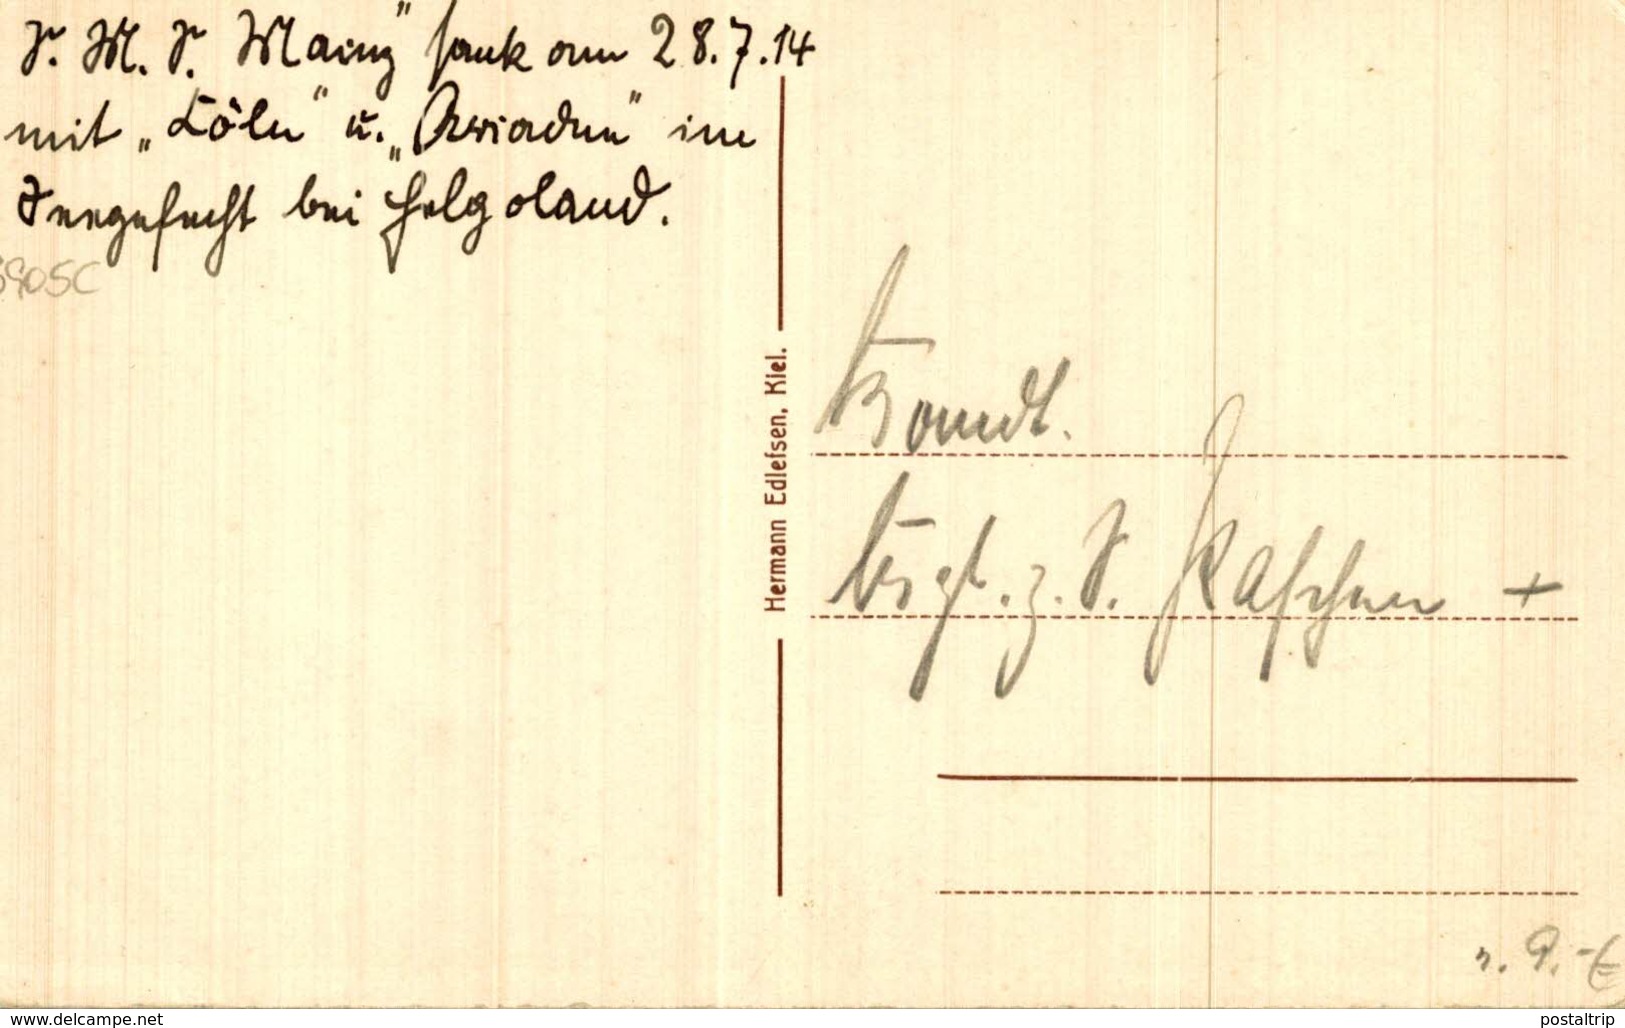 S. M. S. Mainz" sank am 28.7.14
mit „Cöln" u. „Ariadne" im
Seegefecht bei Helgoland.
Hermann Edlefsen, Kiel.
Komdt.
z. S. Paschen +
www.delcampe.net
postaltrip